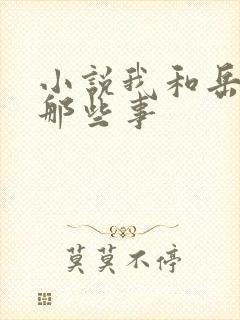 小说我和岳
那些事
莫莫不停